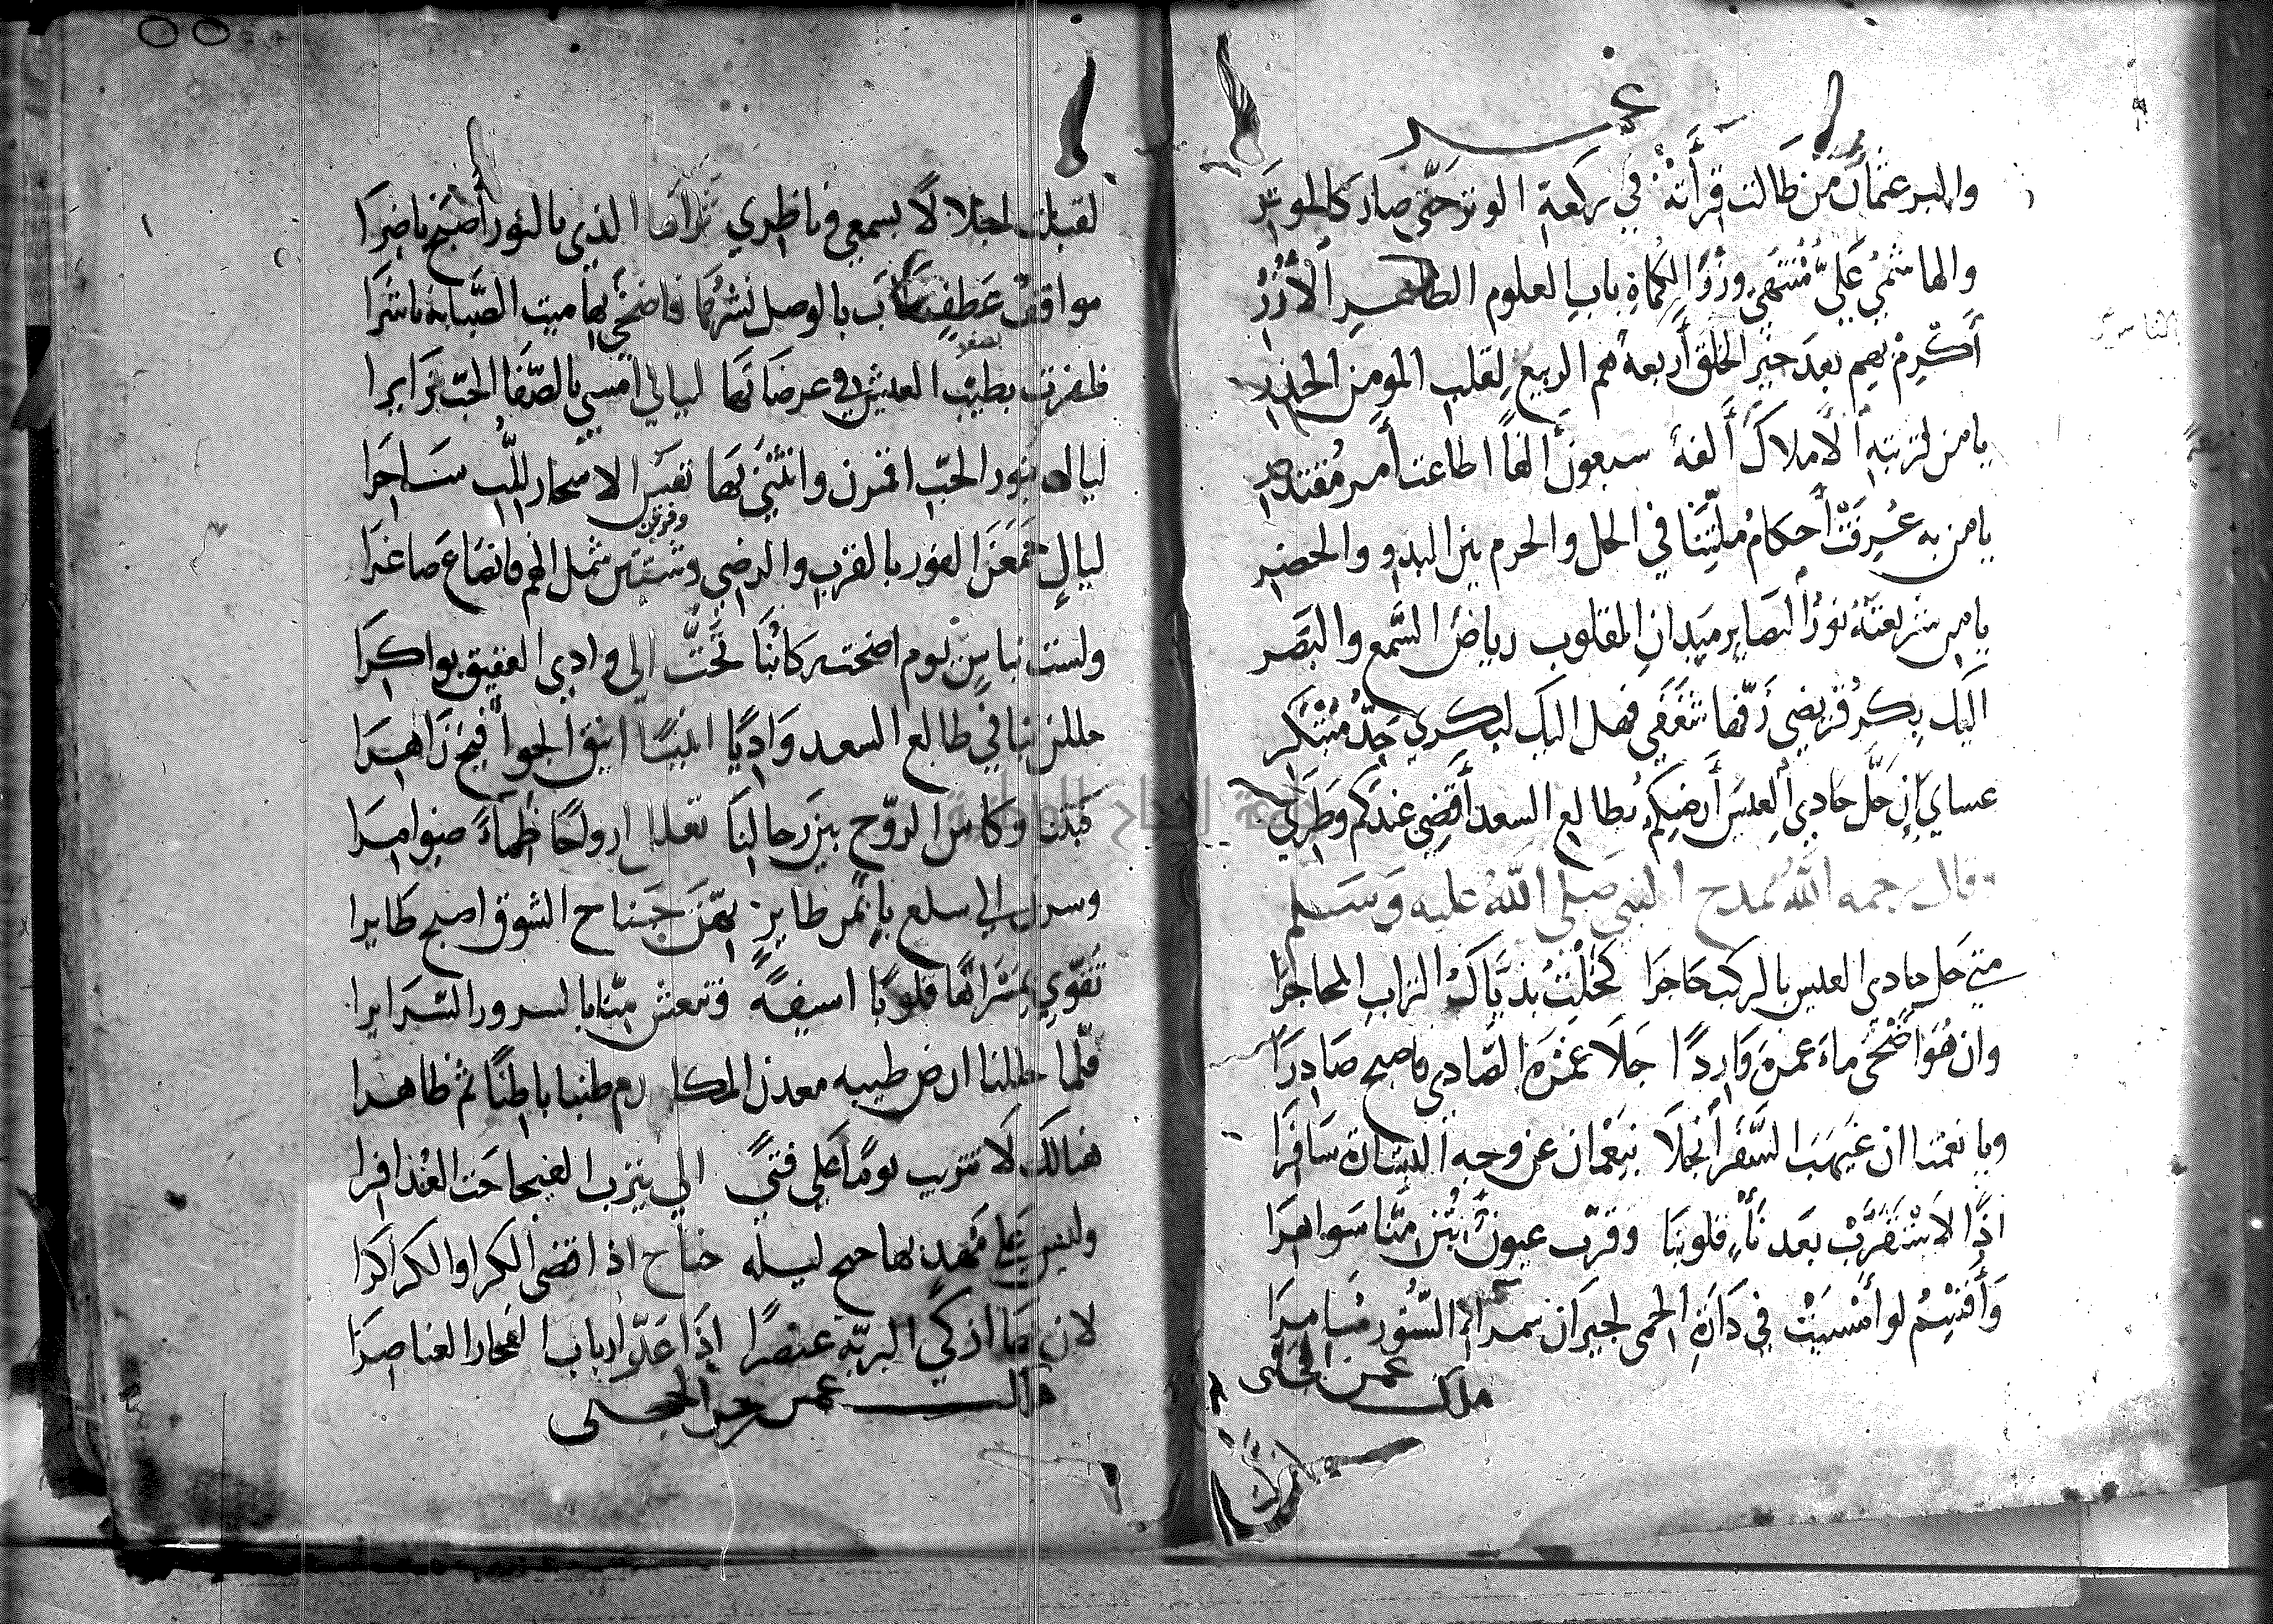 والبر عثمان من طالت قرأته في ركعة الوتر حتى صار كالوتر
والهاشمي علي منتهى وزر الكماة باب العلوم الطاهر الأزر
أكرم بهم بعد خير الخلق أربعة هم الربيع لقلب المومن الحذر
يا من لتربته الأملاك ألفة سبعون ألفا اطاعت أمر مقتدر
يا من به عرفت أحكام ملتنا في الحل والحرم بين البدو والحضر
يا من شريعته نور البصاير ميدان القلوب رياض السمع والبصر
اليك بكر قريضي زفها شغفي فهل اليك لبكري جد مبتكر
عساي إن حل حادي العيس أرضيكم بطالع السعد أقضي عندكم وطري
قال رحمه الله يمدح النبي صلى الله عليه وسلم
متى حل حادي العيس بالركب حاجرا كحلت بذياك التراب المحاجرا
وان هو اضحى ماء عمرة واردا جلا غمرة الصادي فاصبح صادرا
ويا نعمتا ان غيهب السفر أنجلا بنعمان عن وجه البشارة سافرا
اذا لاستقرت بعد نأي قلوبنا وقرت عيون بتن منا سواهرا
وأفنيتم لو أمسيت في دارة الحمى لجيران سمراء الستور مسامرا
ملك عمر
لقبلت اجلالا بسمعي وناظري ثراها الذي بالنور أصبح ناضرا
مواقف عطف شاب بالوصل نشرها فاضحى بها ميت الصبابة ناشرا
فلفزت بطيب العيش في عرصاتها ليالي امسي بالصفا الحب زايرا
ليال بنور الحب اقمرن وانثنى بها نفس الاسحار للب ساحرا
وفرقن
ليال جمعن الفوز بالقرب والرضى وشتتن شمل الهم فانصاع صاغرا
ولست بناس يوم اضحت ركابنا تحث الى وادي العقيق بواكرا
حللن بنا في طالع السعد واديا انيسا انيق الجو أفيح زاهرا
فبتنا وكاس الروح بين رحالنا تعلل ارواحا ظماءً ضوامرا
وسرن الى سلع بايمن طاير بهمن جناح الشوق اصبح طايرا
تقوي بمسراها قلوبا اسيفة وتنعش منا بالسرور السرايرا
فلما حللنا ارض طيبه معدن المكارم طبنا باطنا ثم ظاهرا
هنالك لا تثريب يوما على فتى الى يثرب الفيحا حث العذافرا
وليس على مهد بها صح ليله جناح اذا اقضى الكرا والكراكرا
لان بها ازكى البرية عنصرا إذا عد ارباب الفخار العناصرا